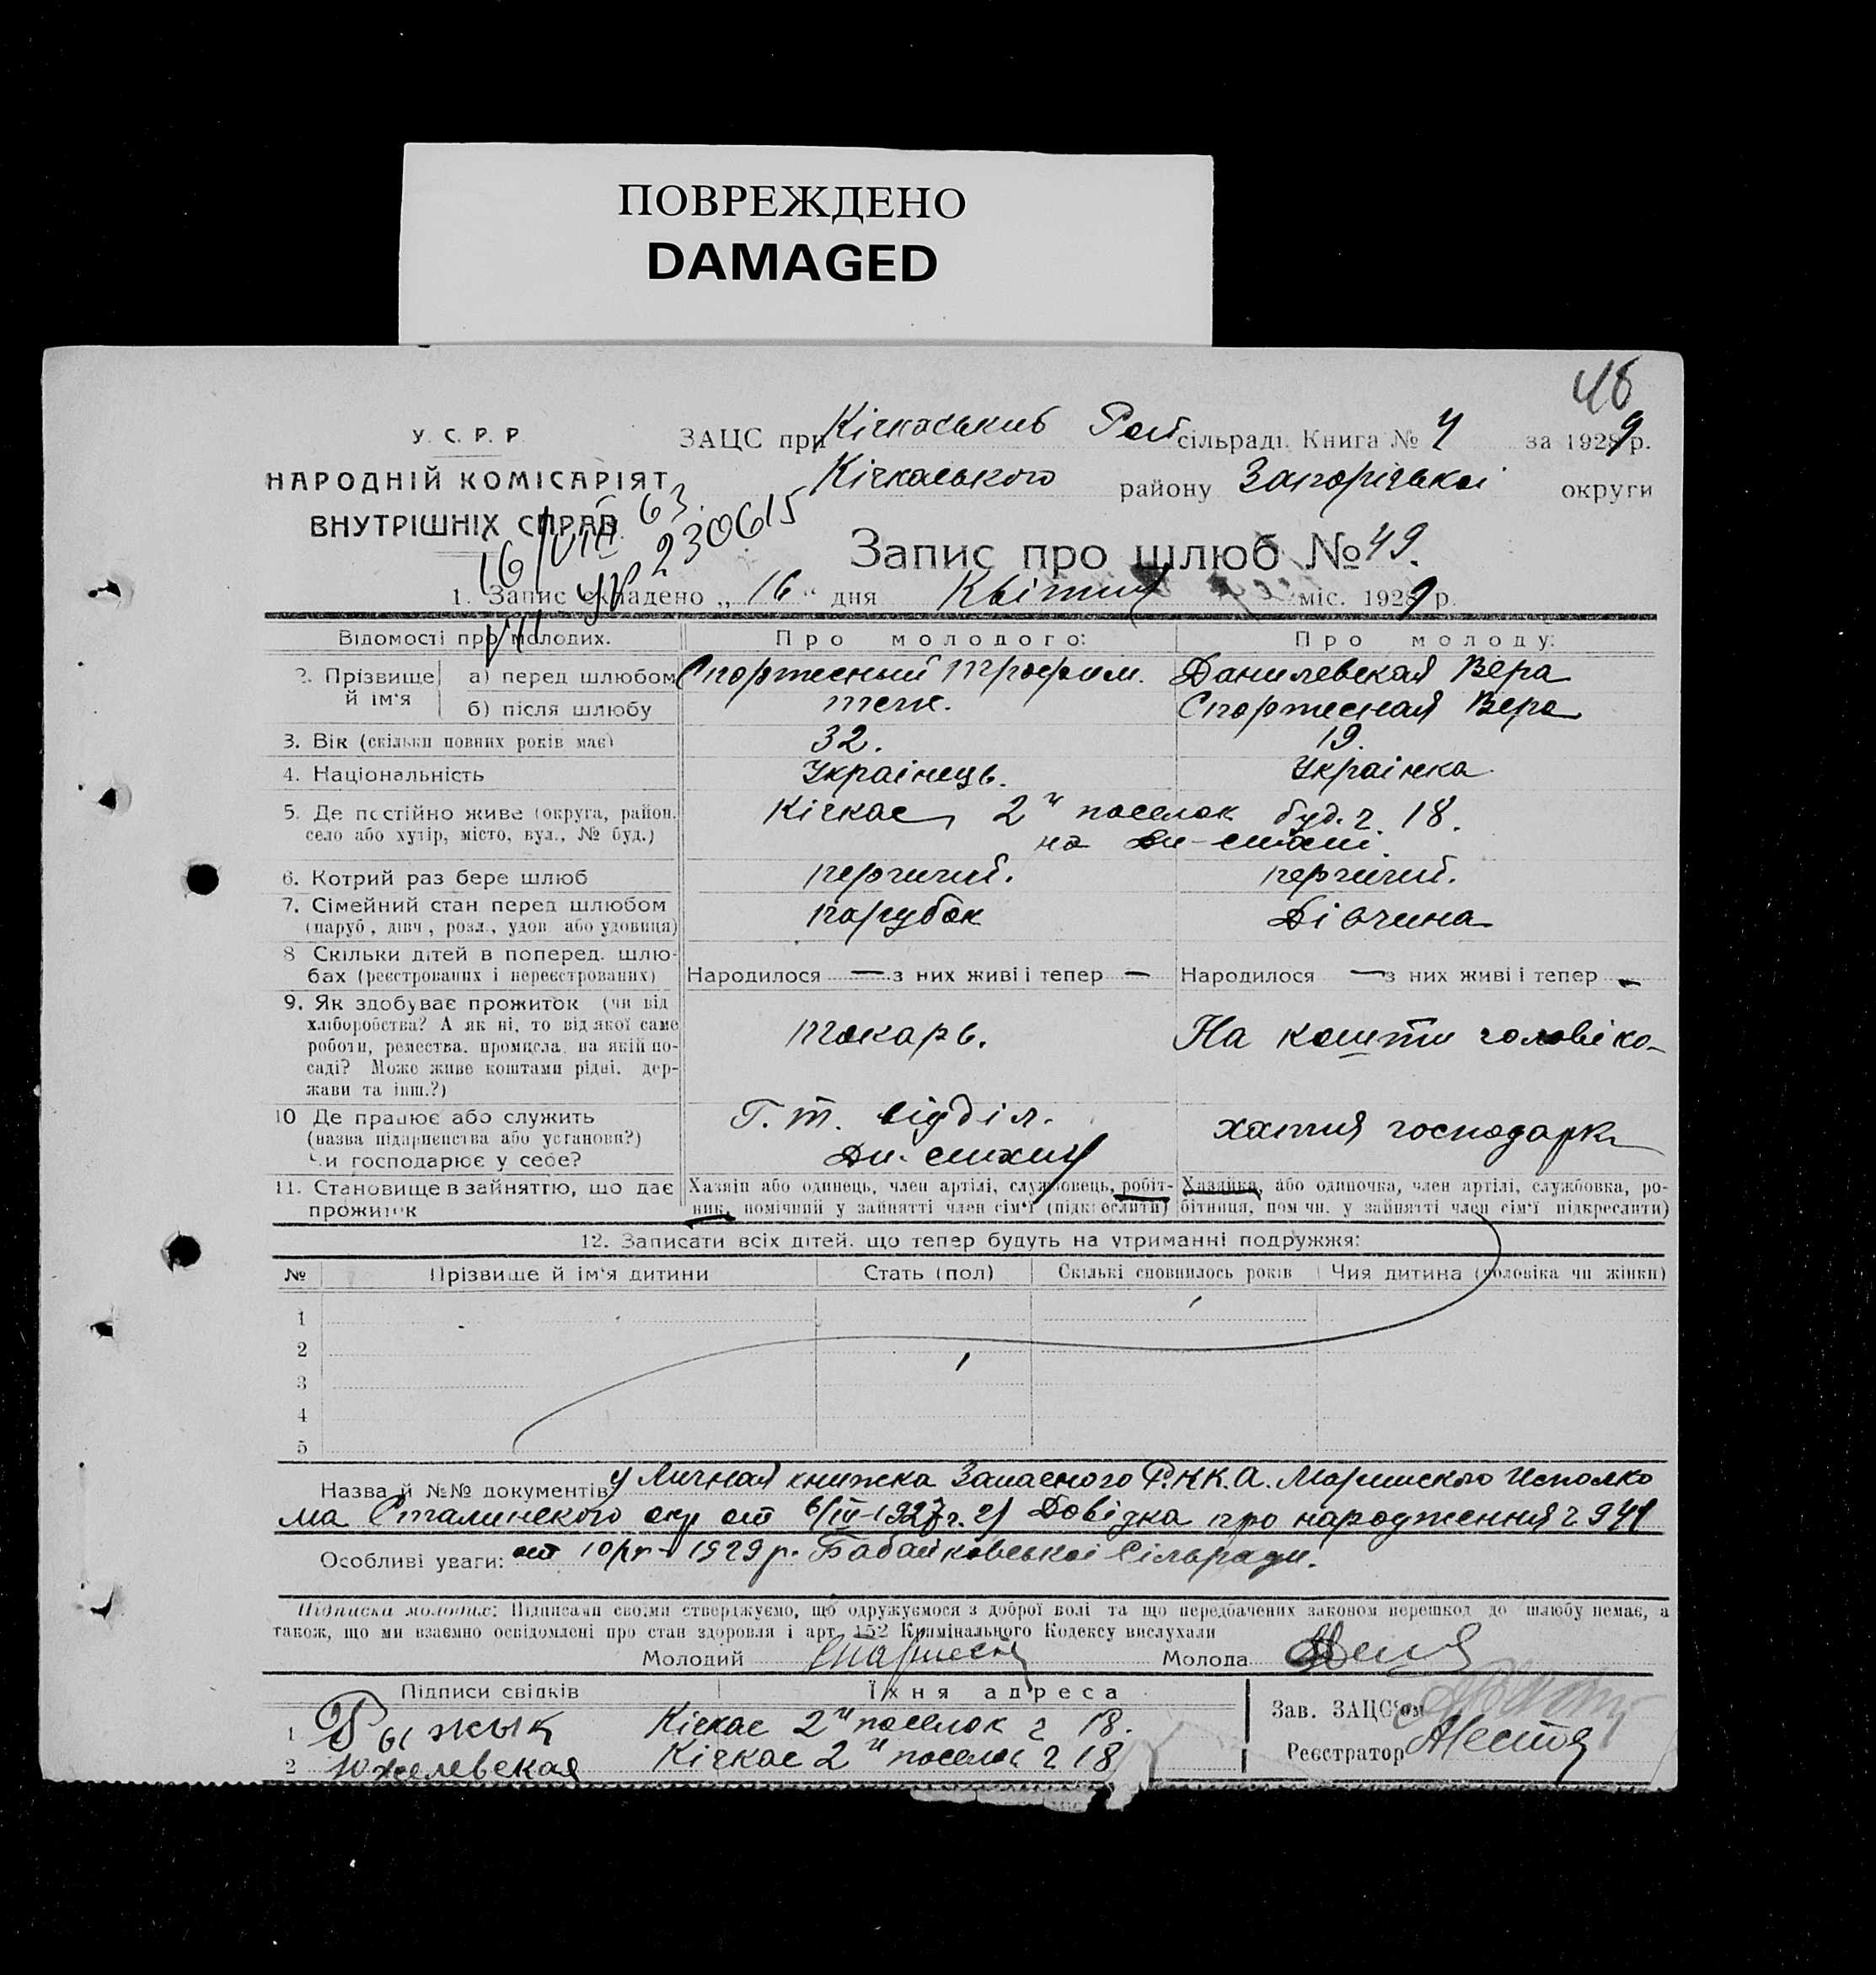 ПОВРЕЖДЕНО
DAMAGED
48
У. С. Р. Р.
НАРОДНІЙ КОМІСАРІЯТ
ВНУТРІШНІХ СПРАВ
ЗАЦС при Кічкаський Рай сільраді. Книга № 4 за 1929 р.
Кічкаського району Запорізької округи
16/VIII 63.
230615
Запис про шлюб № 49.
1. Запис складено „ 16 “ дня Квітня міс. 1929 р.
Відомості про молодих.
Про молодого:
Про молоду:
2. Прізвище й ім'я
а) перед шлюбом
Данилевская Вера
б) після шлюбу
теж.
Вера
3. Вік (скільки повних років має)
32.
19.
4. Національність
Українець.
Українка
5. Де постійно живе (округа, район,
село або хутір, місто, вул., № буд.)
Кічкас, 2й поселок буд. ч. 18.
6. Котрий раз бере шлюб
первичий.
первичий.
7. Сімейний стан перед шлюбом
(паруб., дівч., розл., удов. або удовиця)
парубок
Дівчина
8 Скільки дітей в поперед. шлю-
бах (реєстрованих і нереєстрованих)
Народилося — з них живі і тепер —
Народилося — з них живі і тепер —
9. Як здобуває прожиток (чи від
хліборобства? А як ні, то від якої саме
роботи, ремества, промисла, на якій по-
саді? Може живе коштами рідні, дер-
жави та інш.?)
токарь.
На кошти чоловіка
10 Де працює або служить
(назва підприємства або установи?)
Чи господарює у себе?
Г. т. відділ.
хатня господарка
11. Становище в зайняттю, що дає
прожиток
Хазяїн або одинець, член артілі, службовець, робіт-
ник, помічний у зайнятті член сім'ї (підкреслити)
Хазяйка, або одиночка, член артілі, службовка, ро-
бітниця, пом чн. у зайнятті член сім'ї підкреслити)
12. Записати всіх дітей, що тепер будуть на утриманні подружжя:
№ Прізвище й ім'я дитини Стать (пол) Скількі сповнилось років Чия дитина (чоловіка чи жінки)
1
2
3
4
5
Назва й №№ документів: Личная книжка Запасного Р.К.К.А. Исполко
ма Сталинского окр от 1927 г. 2) Довідка про народження ч 944
Особливі уваги: от 1929 р. Бабайковської Сільради.
Підписка молодих: Підписами своїми стверджуємо, що одружуємося з доброї волі та що передбачених законом перешкод до шлюбу немає, а
також, що ми взаємно освідомлені про стан здоровля і арт. 152 Кримінального Кодексу вислухали
Молодий
Молода
Підписи свідків
Їхня адреса
1 Рыжык Кічкас 2й поселок ч 18.
2 Кічкас 2й поселок ч 18
Зав. ЗАЦС'ом
Реєстратор